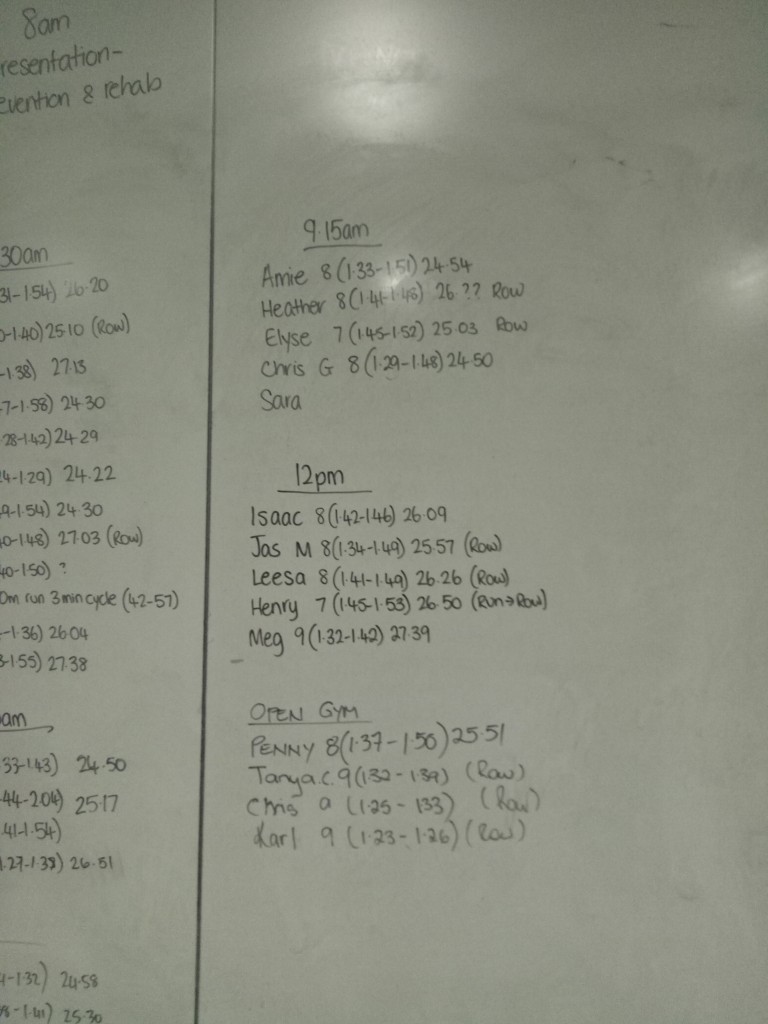 8am
resentation-
evention & rehab
30am
31-1.54) 26.20
0-1.40) 25.10 (Row)
-1.38) 27.13
7-1.58) 24.30
28-1.42) 24.29
4-1.29) 24.22
9-1.54) 24.30
40-1.48) 27.03 (Row)
40-1.50) ?
0m run 3min cycle (42-57)
-1.36) 26.04
3-1.55) 27.38
am
33-1.43) 24.50
44-2.04) 25.17
41-1.54)
1.27-1.38) 26.51
4-1.32) 24.58
8-1.41) 25.30
9.15am
Amie 8 (1.33-1.51) 24.54
Heather 8 (1.41-1.48) 26.?? Row
Elyse 7 (1.45-1.52) 25.03 Row
Chris G 8 (1.29-1.48) 24.50
Sara
12pm
Isaac 8 (1.42-1.46) 26.09
Jas M 8 (1.34-1.49) 25.57 (Row)
Leesa 8 (1.41-1.49) 26.26 (Row)
Henry 7 (1.45-1.53) 26.50 (Run→Row)
Meg 9 (1.32-1.42) 27.39
OPEN GYM
PENNY 8 (1.37-1.50) 25.51
Tanya.C. 9 (1.32-1.39) (Row)
Chris 9 (1.25-1.33) (Row)
Karl 9 (1.23-1.26) (Row)